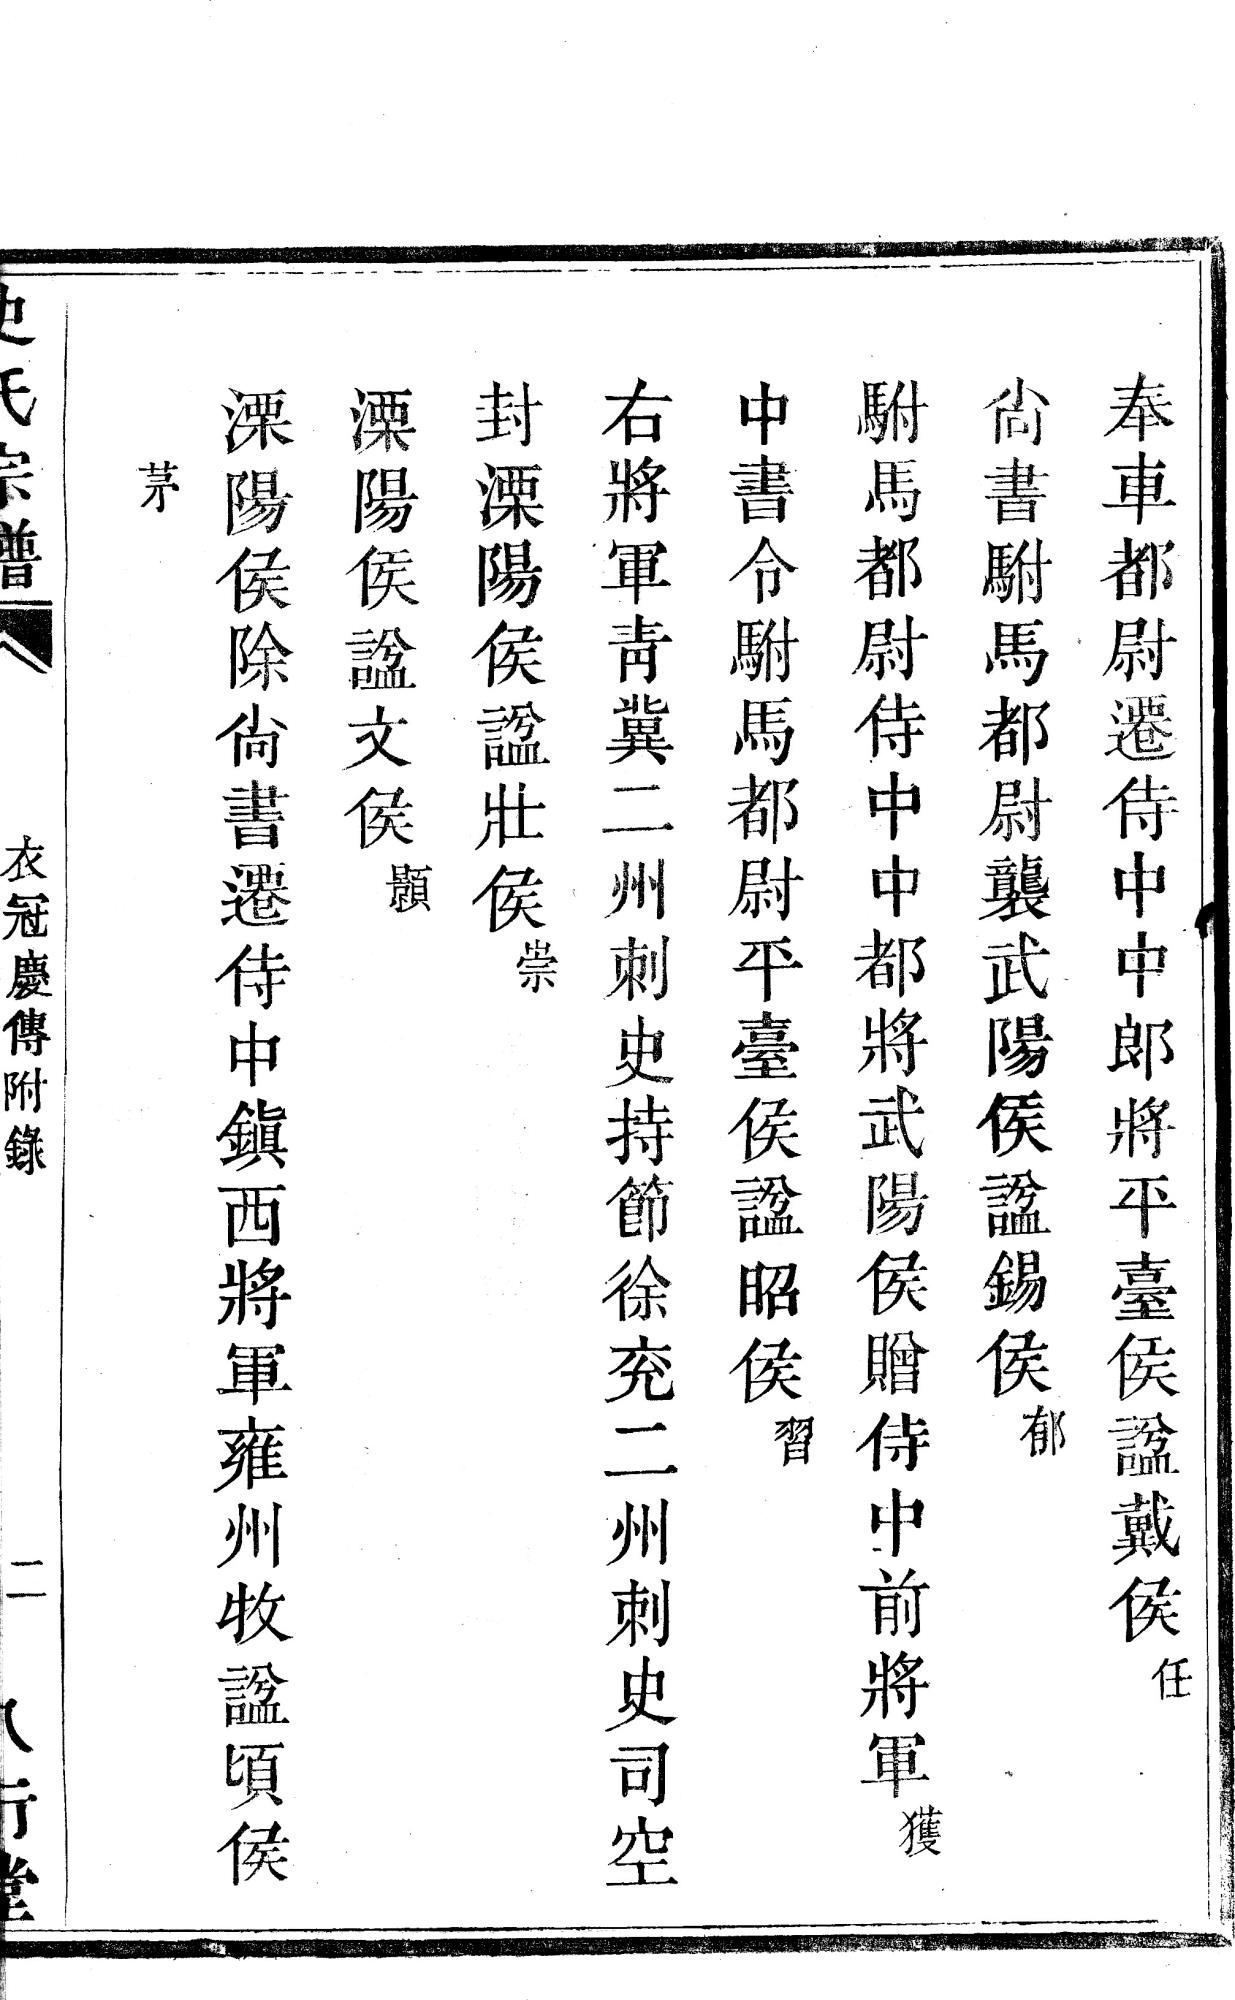 奉車都尉遷侍中中郎將平臺侯諡戴侯任
尙書駙馬都尉襲武陽侯諡錫侯郁
駙馬都尉侍中中都將武陽侯贈侍中前將軍獲
中書令駙馬都尉平臺侯諡昭侯習
右將軍靑冀二州刺史持節徐兖二州刺史司空
封溧陽侯諡壯侯崇
溧陽侯諡文侯顥
溧陽侯除尙書遷侍中鎭西將軍雍州牧諡頃侯
茅
史氏宗譜
衣冠慶傳附錄
二
八行堂